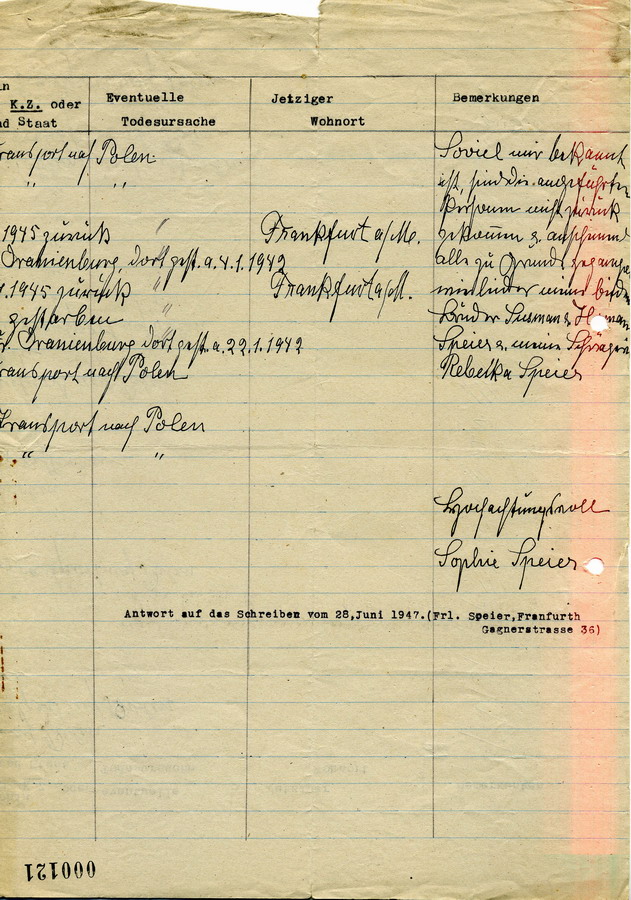 in
K.Z. oder Eventuelle Jetziger Bemerkungen
nd Staat Todesursache Wohnort
ransport nach Polen Soviel mir bekannt
" " ist, sind die angeführten
Personen nicht zurück
1945 zurück " Frankfurt a/M. gekommen & anscheinend
Oranienburg, dort gest. a. 4.1.1942 alle zu Grunde gegangen
1945 zurück " Frankfurt a/M. wie leider meine beiden
gestorben Brüder Susman &
Oranienburg dort gest. a. 22.1.1942 Speier & meine Schwägerin
ransport nach Polen Rebekka Speier
Transport nach Polen
" "
Hochachtungsvoll
Sophie Speier
Antwort auf das Schreiben vom 28,Juni 1947.(Frl. Speier,Franfurth
Gagnerstrasse 36)
000121